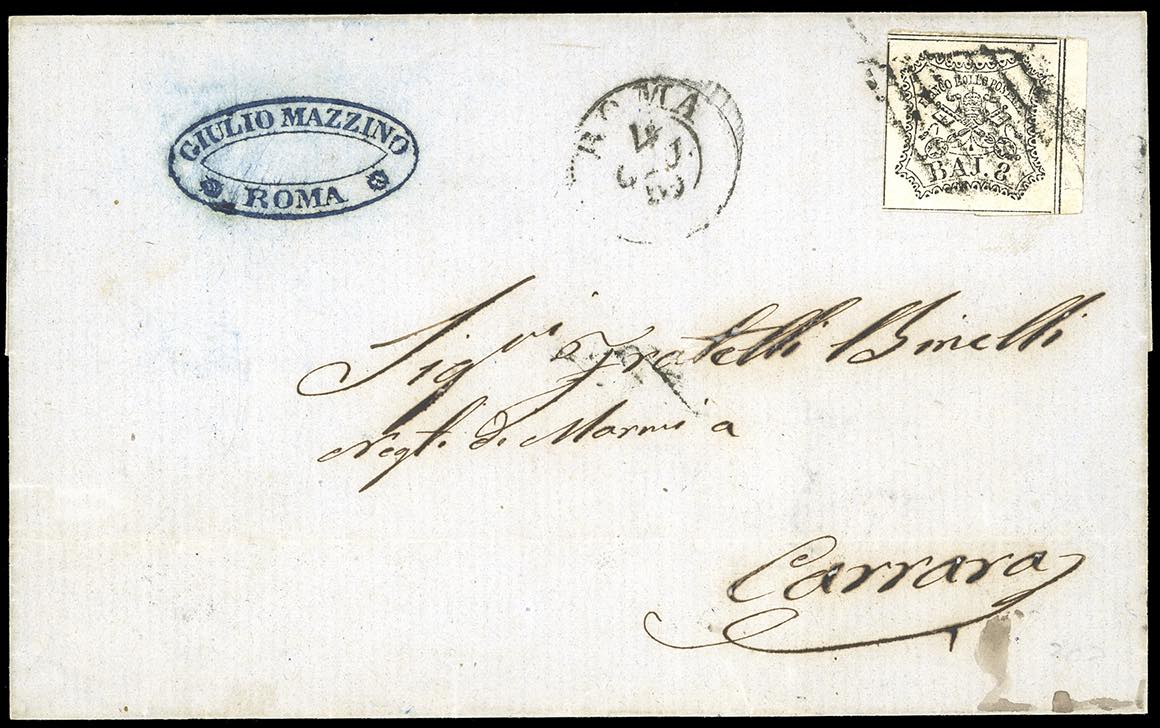 GIULIO MAZZINO
ROMA
ROMA
FRANCO BOLLO POSTALE
BAJ. 8
Sig.ri Fratelli Binelli
Negti. di Marmi a
Carrara